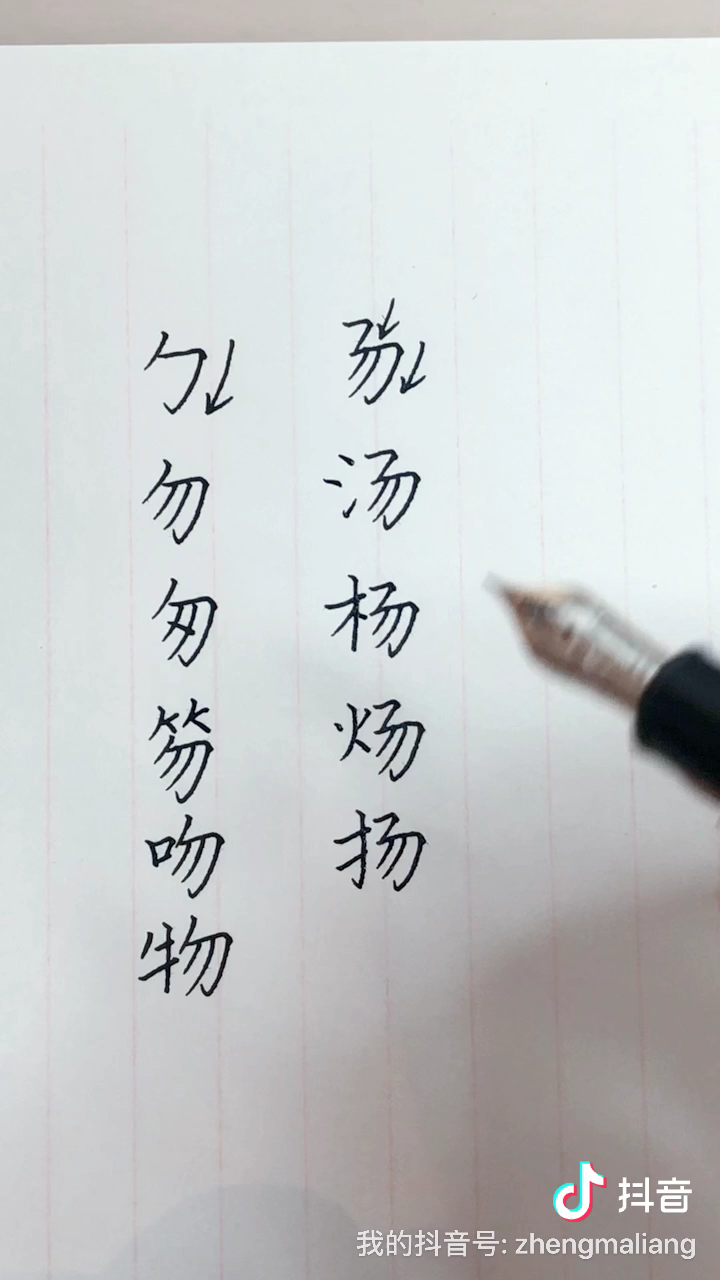 勹
勿
匆
笏
吻
物
汤
杨
炀
扬
抖音
我的抖音号: zhengmaliang